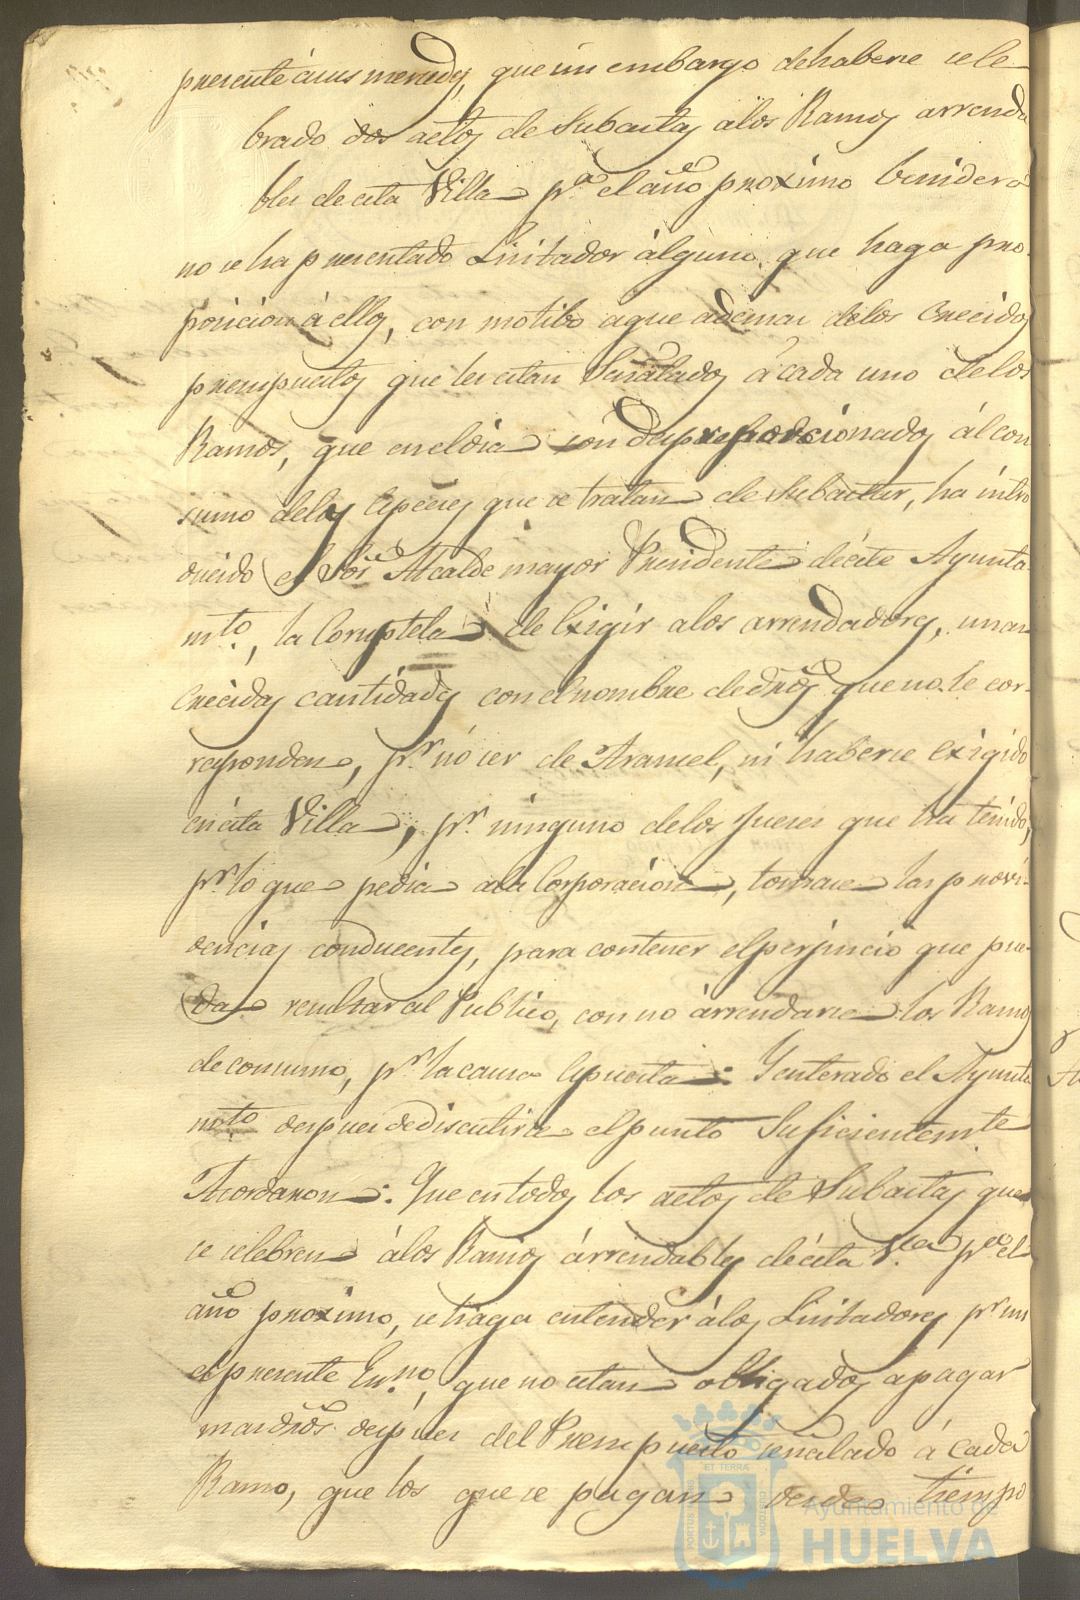 presente á sus mercedes, que sin embargo de haberse cele-
brado dos actos de Subastas á los Ramos arrenda
bles de esta Villa pª el año proximo benidero
no se ha presentado Licitador alguno que haga pro-
posicion á ellos, con motibo a que ademas de los crecidos
presupuestos que les estan Señalados á cada uno de los
Ramos, que en el dia són desproporcionados ál con
sumo delas especies que se tratan de Subastar, ha intro
ducido el Sor. Alcalde mayor Presidente de éste Ayunta-
mto., la Coruptela de Exigir a los arrendadores, unas
Crecidas cantidades con el nombre de dros que no le cor-
responden, pr. nó ser de Arancel, ni haberse exigido
en ésta Villa, pr. ninguno de los Jueces que ha tenido,
pr. lo que pedia a la Corporacion, tomase las provi-
dencias conducentes, para contener el perjuicio que pue-
da resultar al Publico, con no árrendarse los Ramos
de consumo, pr. la causa Espuesta: Y enterado el Ayunta
mto. despues de discutirse el punto Suficientemte
Acordaron: Que en todos los actos de Subastas que
se celebren á los Ramos árrendables de ésta Vª. pª el
año proximo, se haga entender á los Licitadores pr. mi
el presente Esno., que no estan obligados a pagar
mas dros. despues del Presupuesto señalado á cada
Ramo, que los que se pagan desde tiempo
PORTUS MARIS
ET TERRÆ
CUSTODIA
Ayuntamiento de
HUELVA